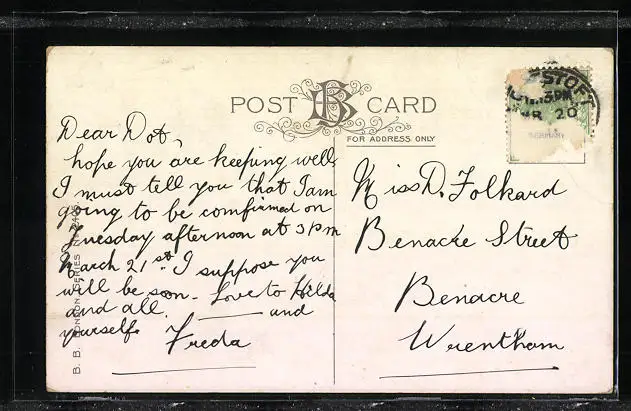 POST B CARD
FOR ADDRESS ONLY
STOFT
5PM
AR 20
GERMANY
Dear Dot,
hope you are keeping well
I must tell you that I am
going to be comfirmed on
Tuesday afternoon at 3 pm
March 21st I suppose you
will be son - Love to Hilda
and all. and
yourself.
Freda
Miss D. Folkard
Benacre Street
Benacre
Wrentham
B. B. LONDON SERIES No